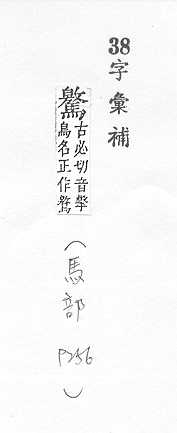 38字彙補
古必切音
鳥名正作
（馬部 P256）